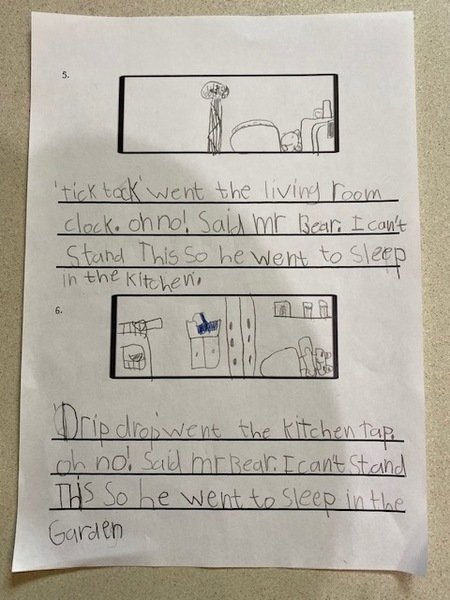 5.
'tick tock' went the living room
clock. oh no! Said mr Bear. I can't
Stand This So he went to Sleep
in the kitchen.
6.
'Drip drop' went the kitchen tap.
oh no! Said mr Bear. I can't Stand
This So he went to Sleep in the
Garden